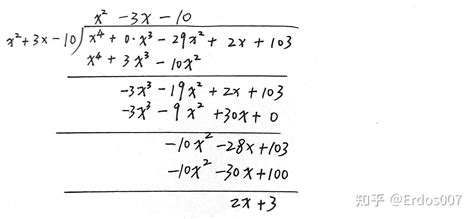 x² -3x -10
x²+3x-10) x⁴ + 0·x³ - 29x² + 2x + 103
x⁴ + 3x³ - 10x²
-3x³ - 19x² + 2x + 103
-3x³ - 9x² + 30x + 0
-10x² - 28x + 103
-10x² - 30x + 100
2x + 3
知乎 @Erdos007